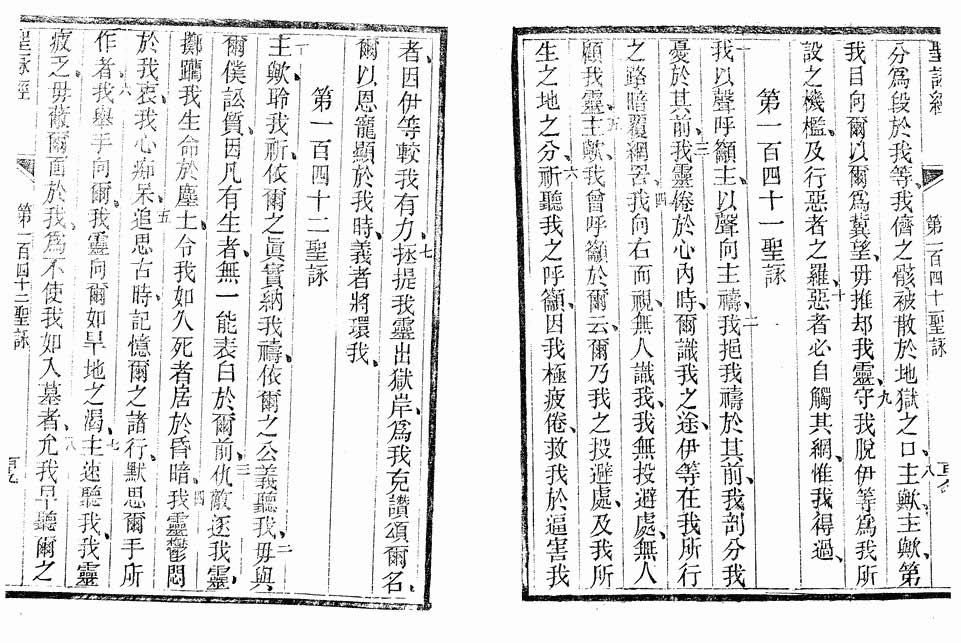 聖詠經
第一百四十一聖詠
分爲段於我等、我儕之骸被散於地獄之口、八主歟、主歟、第
我目向爾、以爾爲冀望、毋推却我靈、九守我脫伊等爲我所
設之機檻、及行惡者之羅、十惡者必自觸其網、惟我得過、
第一百四十一聖詠
一我以聲呼籲主、以聲向主禱、二我挹我禱於其前、我剖分我
憂於其前、三我靈倦於心內時、爾識我之途、伊等在我所行
之路、暗覆網罟、四我向右而視、無人識我、我無投避處、無人
顧我靈、五主歟、我曾呼籲於爾云、爾乃我之投避處、及我所
生之地之分、六祈聽我之呼籲、因我極疲倦、救我於逼害我
者、因伊等較我有力、七拯提我靈出獄岸、爲我克讚頌爾名、
爾以恩寵顯於我時、義者將環我、
第一百四十二聖詠
一主歟、聆我祈、依爾之眞實納我禱、依爾之公義聽我、二毋與
爾僕訟質、因凡有生者、無一能表白於爾前、三仇敵逐我靈、
擲躪我生命於塵土、令我如久死者居於昏暗、四我靈鬱悶
於我衷、我心痴呆、五追思古時、記憶爾之諸行、默思爾手所
作者、六我舉手向爾、我靈向爾如旱地之渴、七主速聽我、我靈
疲乏、毋蔽爾面於我、爲不使我如入墓者、八允我早聽爾之
聖詠經
第一百四十二聖詠